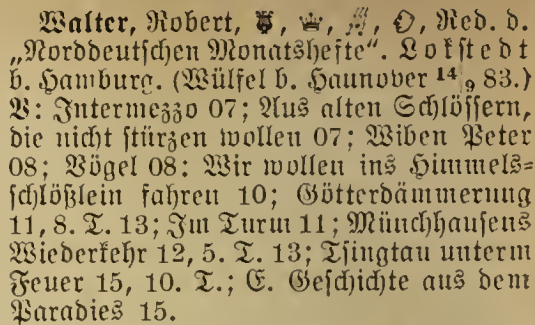 Walter, Robert, Red. d.
„Norddeutschen Monatshefte“. Lokstedt
b. Hamburg. (Wülfel b. Hannover 14/9 83.)
V: Intermezzo 07; Aus alten Schlössern,
die nicht stürzen wollen 07; Wiben Peter
08; Vögel 08; Wir wollen ins Himmels-
schlößlein fahren 10; Götterdämmerung
11, 8. T. 13; Im Turm 11; Münchhausens
Wiederkehr 12, 5. T. 13; Tsingtau unterm
Feuer 15, 10. T.; E. Geschichte aus dem
Paradies 15.